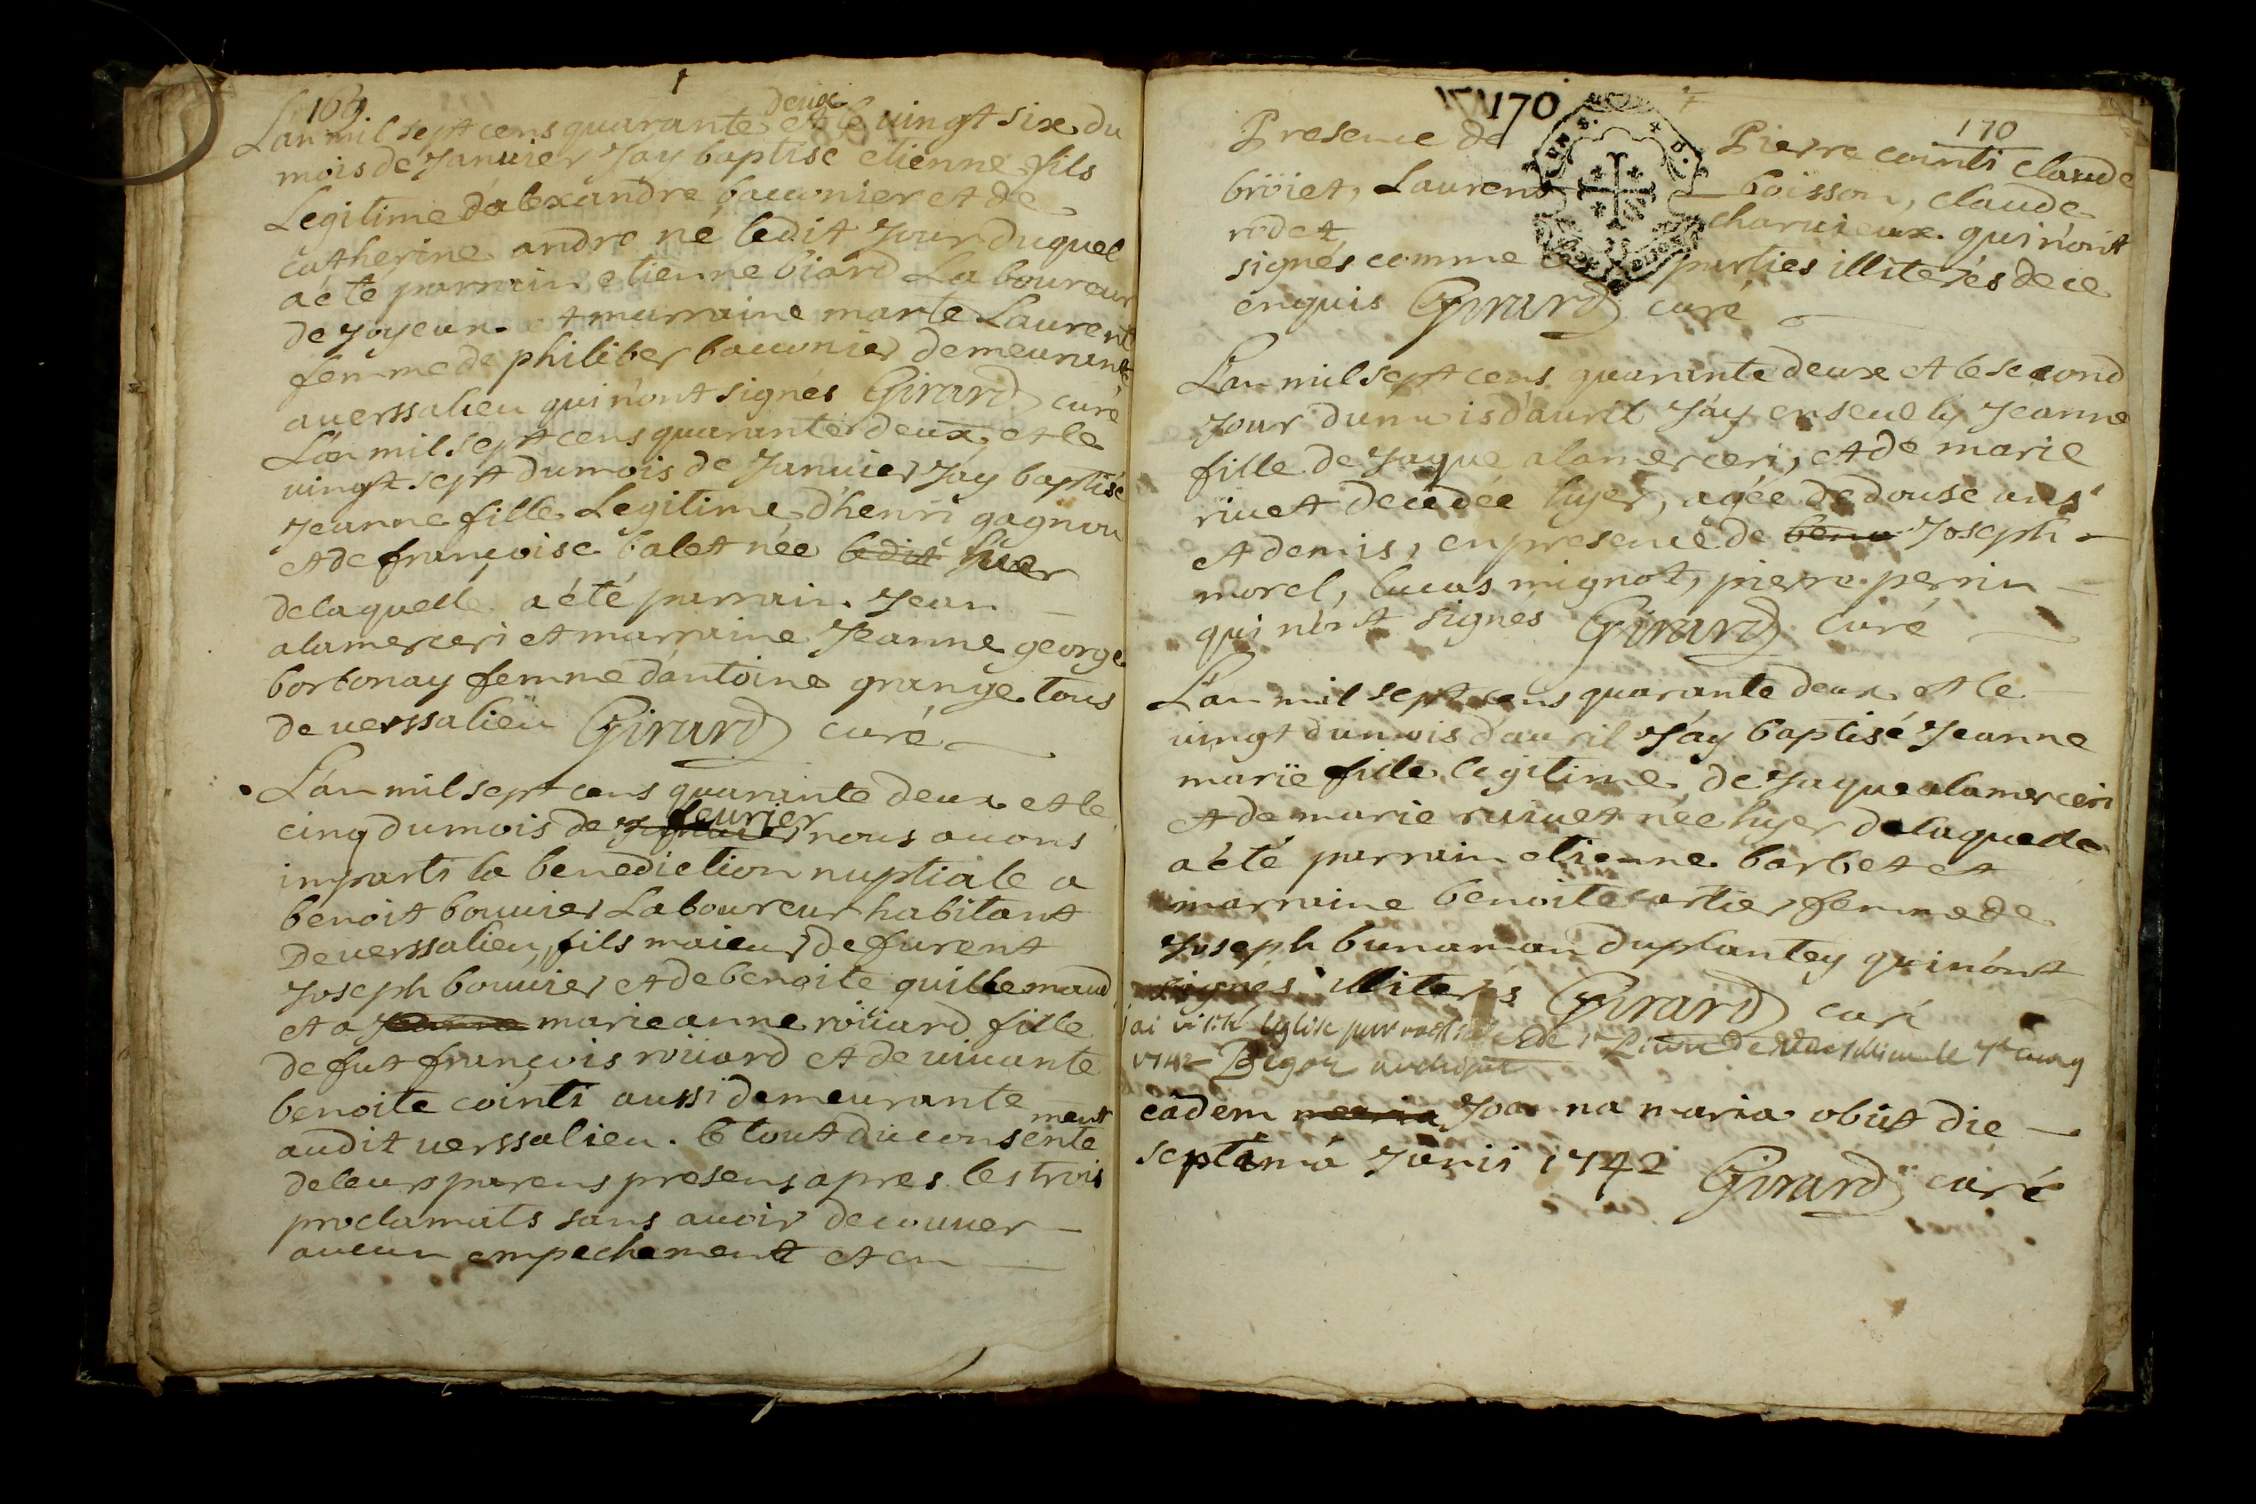 169
L'an mil sept cens quarante deux et le vingt six du
mois de Januier J'ay baptisé etienne fils
Legitime d'alexandre bacconier et de
catherine andre né ledit Jour duquel
a été parrain etienne biard Laboureur
de Joyeux et marraine marte Laurent
femme de philiber bacconier demeurant
a uerssalieu qui n'ont signés Girard curé
L'an mil sept cens quarante deux, et le
uingt sept du mois de Januier J'ay baptisé
Jeanne fille Legitime d'henri gagnou
et de françoise balet née ledit hier
de laquelle a été parrain Jean
alamerceri et marraine Jeanne george
borbonay femme d'antoine grange tous
de uerssalieu Girard curé
L'an mil sept cens quarante deux et le
cinq du mois de feurier nous auons
imparti la benediction nuptiale a
benoit bouuier Laboureur habitant
De uerssalieu, fils maieur de furent
Joseph bouuier et de benoite guillemaud
et a Jeanne marieanne roüard fille
de fut françois roüard et de uiuante
benoite cointi aussi demeurante
audit uerssalieu. le tout du consentement
de leurs parens presens apres les trois
proclamats sans auoir decouuer
aucun empechement et en
170
170
Presence de Pierre cointi claude
broiet, Laurent boisson, claude
rodet charuieux qui n'ont
signés comme parties illiterés de ce
enquis Girard curé
L'an mil sept cens quarante deux et le second
Jour du mois d'auril J'ay enseuely Jeanne
fille de Jaque alamerceri, et de marie
riuet decedée hyer, agée de douse ans
et demis, en presence de beno Joseph
morel, lucas mignot, pierre perrin
qui n'ont signés Girard curé
L'an mil sept cens quarante deux et le
uingt du mois d'auril J'ay baptisé Jeanne
marie fille legitime de Jaque alamerceri
et de marie riuuet née hyer de laquelle
a été parrain etienne barbet et
marraine benoite cartier femme de
Joseph bunaman du plantey qui n'ont
signés illiterés Girard curé
j'ai visité l'église parroissiale de St Pierre de Verssalieu le
1742
eadem maria Joanna maria obiit die
septima Junii 1742 Girard curé